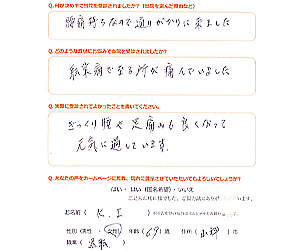 Q.何が決め手で当院を受診されましたか？（当院を選んだ理由など）
腰痛持ちなので通りがかりに来ました
Q.どのような症状でお悩みで当院を受診されましたか？
至る所が痛んでいました
Q.実際に受診されてよかったことを書いてください。
ぎっくり腰や足痛みも良くなって
元気に過しています。
Q.あなたの声をホームページに写真、院内に掲示させていただいてもよろしいでしょうか？
はい・はい（匿名希望）・いいえ
お名前（ K. I ）
性別（男性・女性） 年齢（69）歳 住所（ ）市
職業（ ）